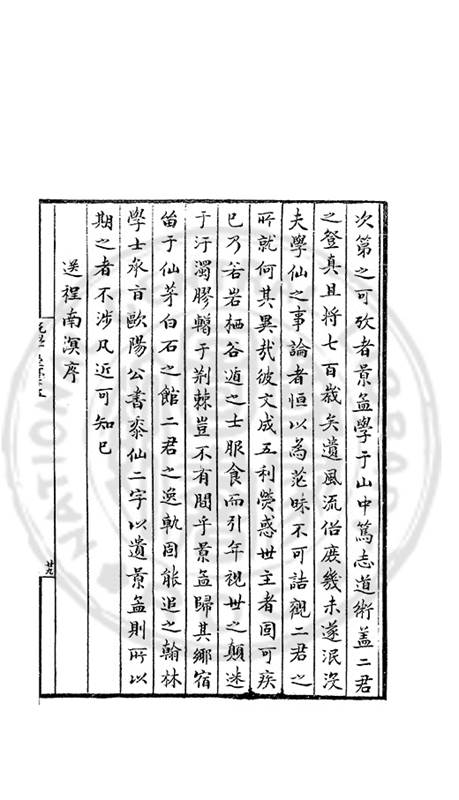 次第之可攷者景孟學于山中篤志道術葢二君
之登真且將七百歲矣遺風流俗庶幾未遂泯沒
夫學仙之事論者恒以為茫昧不可詰觀二君之
所就何其異哉彼文成五利熒惑世主者固可疾
已乃若岩栖谷遁之士服食而引年視世之顛迷
于汙濁膠轕于荆棘豈不有間乎景孟歸其鄉宿
留于仙茅白石之館二君之逸軌固能追之翰林
學士承㫖歐陽公書泰仙二字以遺景孟則所以
期之者不涉凡近可知已
送程南溟序
廿九